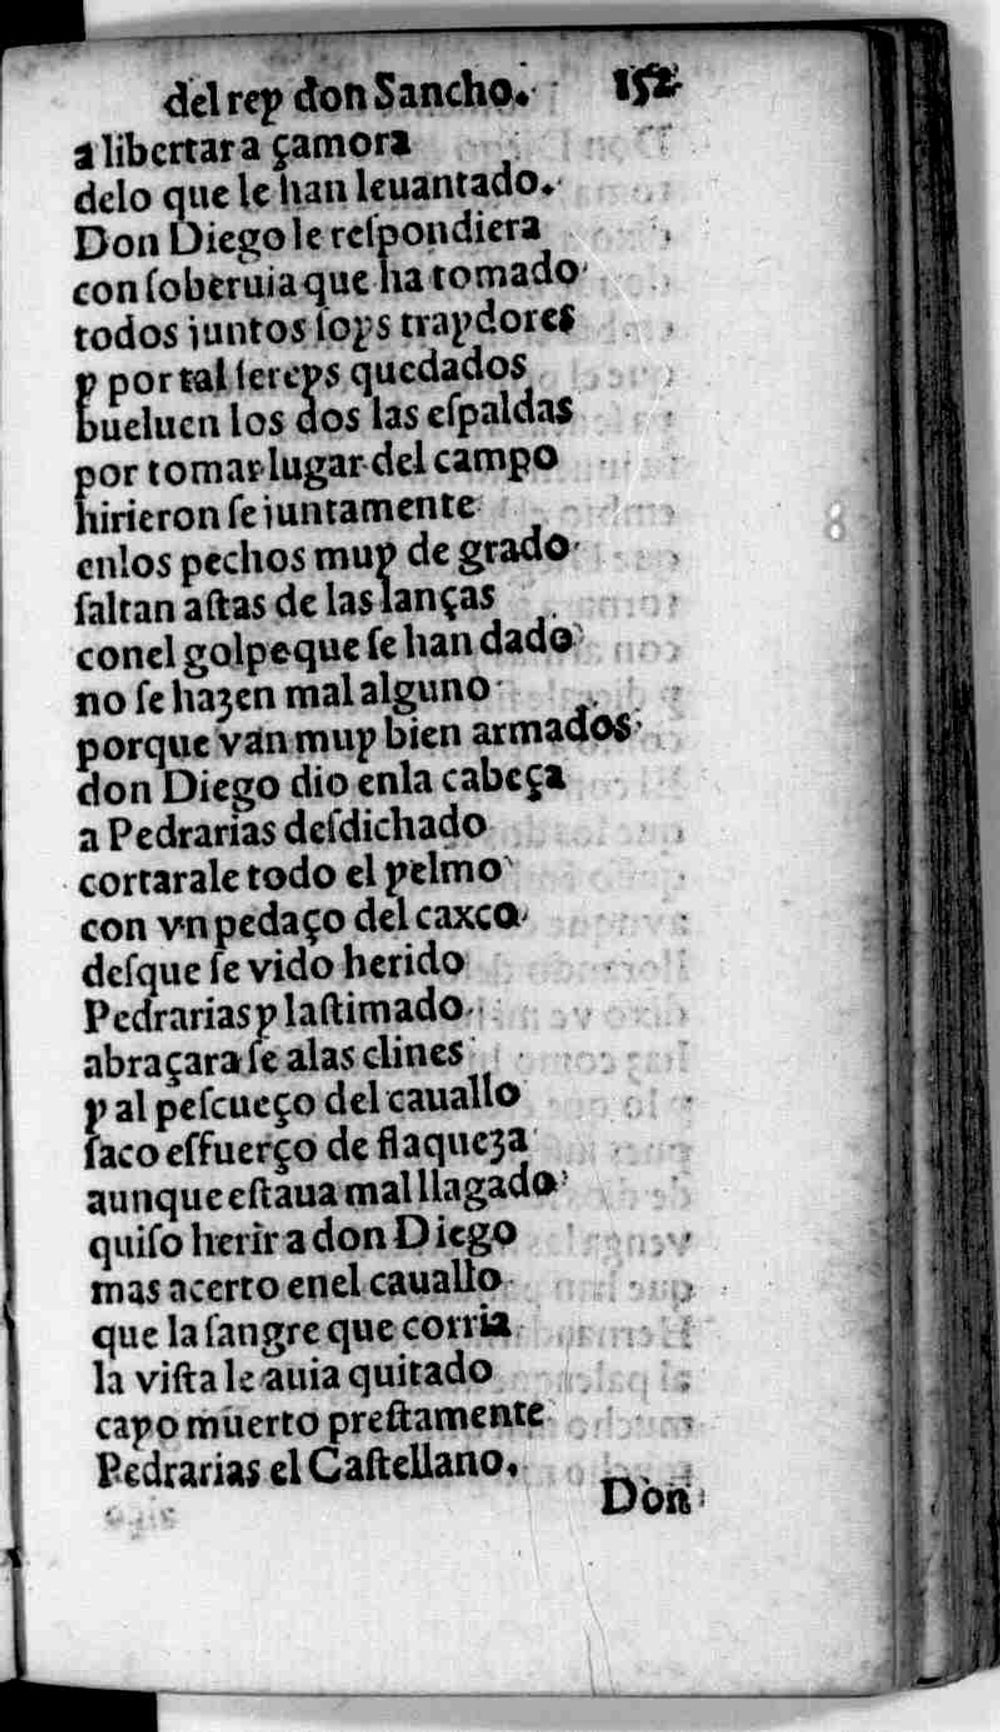 del rey don Sancho. 152
a libertar a çamora
delo que le han leuantado.
Don Diego le reſpondiera
con ſoberuia que ha tomado
todos juntos ſoys traydores
y por tal ſereys quedados
bueluen los dos las eſpaldas
por tomar lugar del campo
hirieron ſe juntamente
enlos pechos muy de grado
ſaltan aſtas de las lanças
conel golpe que ſe han dado
no ſe hazen mal alguno
porque van muy bien armados
don Diego dio enla cabeça
a Pedrarias deſdichado
cortarale todo el yelmo
con vn pedaço del caxco
deſque ſe vido herido
Pedrarias y laſtimado
abraçara ſe alas clines
y al peſcueço del cauallo
ſaco eſfuerço de flaqueza
aunque eſtaua mal llagado
quiſo herir a don Diego
mas acerto enel cauallo
que la ſangre que corria
la viſta le auia quitado
cayo muerto preſtamente
Pedrarias el Caſtellano.
Don